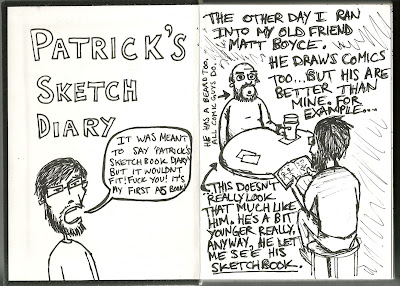 PATRICK'S
SKETCH
DIARY
IT WAS MEANT
TO SAY PATRICK'S
SKETCHBOOK DIARY
BUT IT WOULDNT
FIT! FUCK YOU! IT'S
MY FIRST BOOK!
THE OTHER DAY I RAN
INTO MY OLD FRIEND
MATT BOYCE.
HE DRAWS COMICS
TOO... BUT HIS ARE
BETTER THAN
MINE. FOR
EXAMPLE...
HE HAS A BEARD TOO.
ALL COMIC GUYS DO.
THIS DOESN'T
REALLY LOOK
THAT MUCH LIKE
HIM. HES A BIT
YOUNGER REALLY.
ANYWAY, HE LET
ME SEE HIS
SKETCHBOOK.